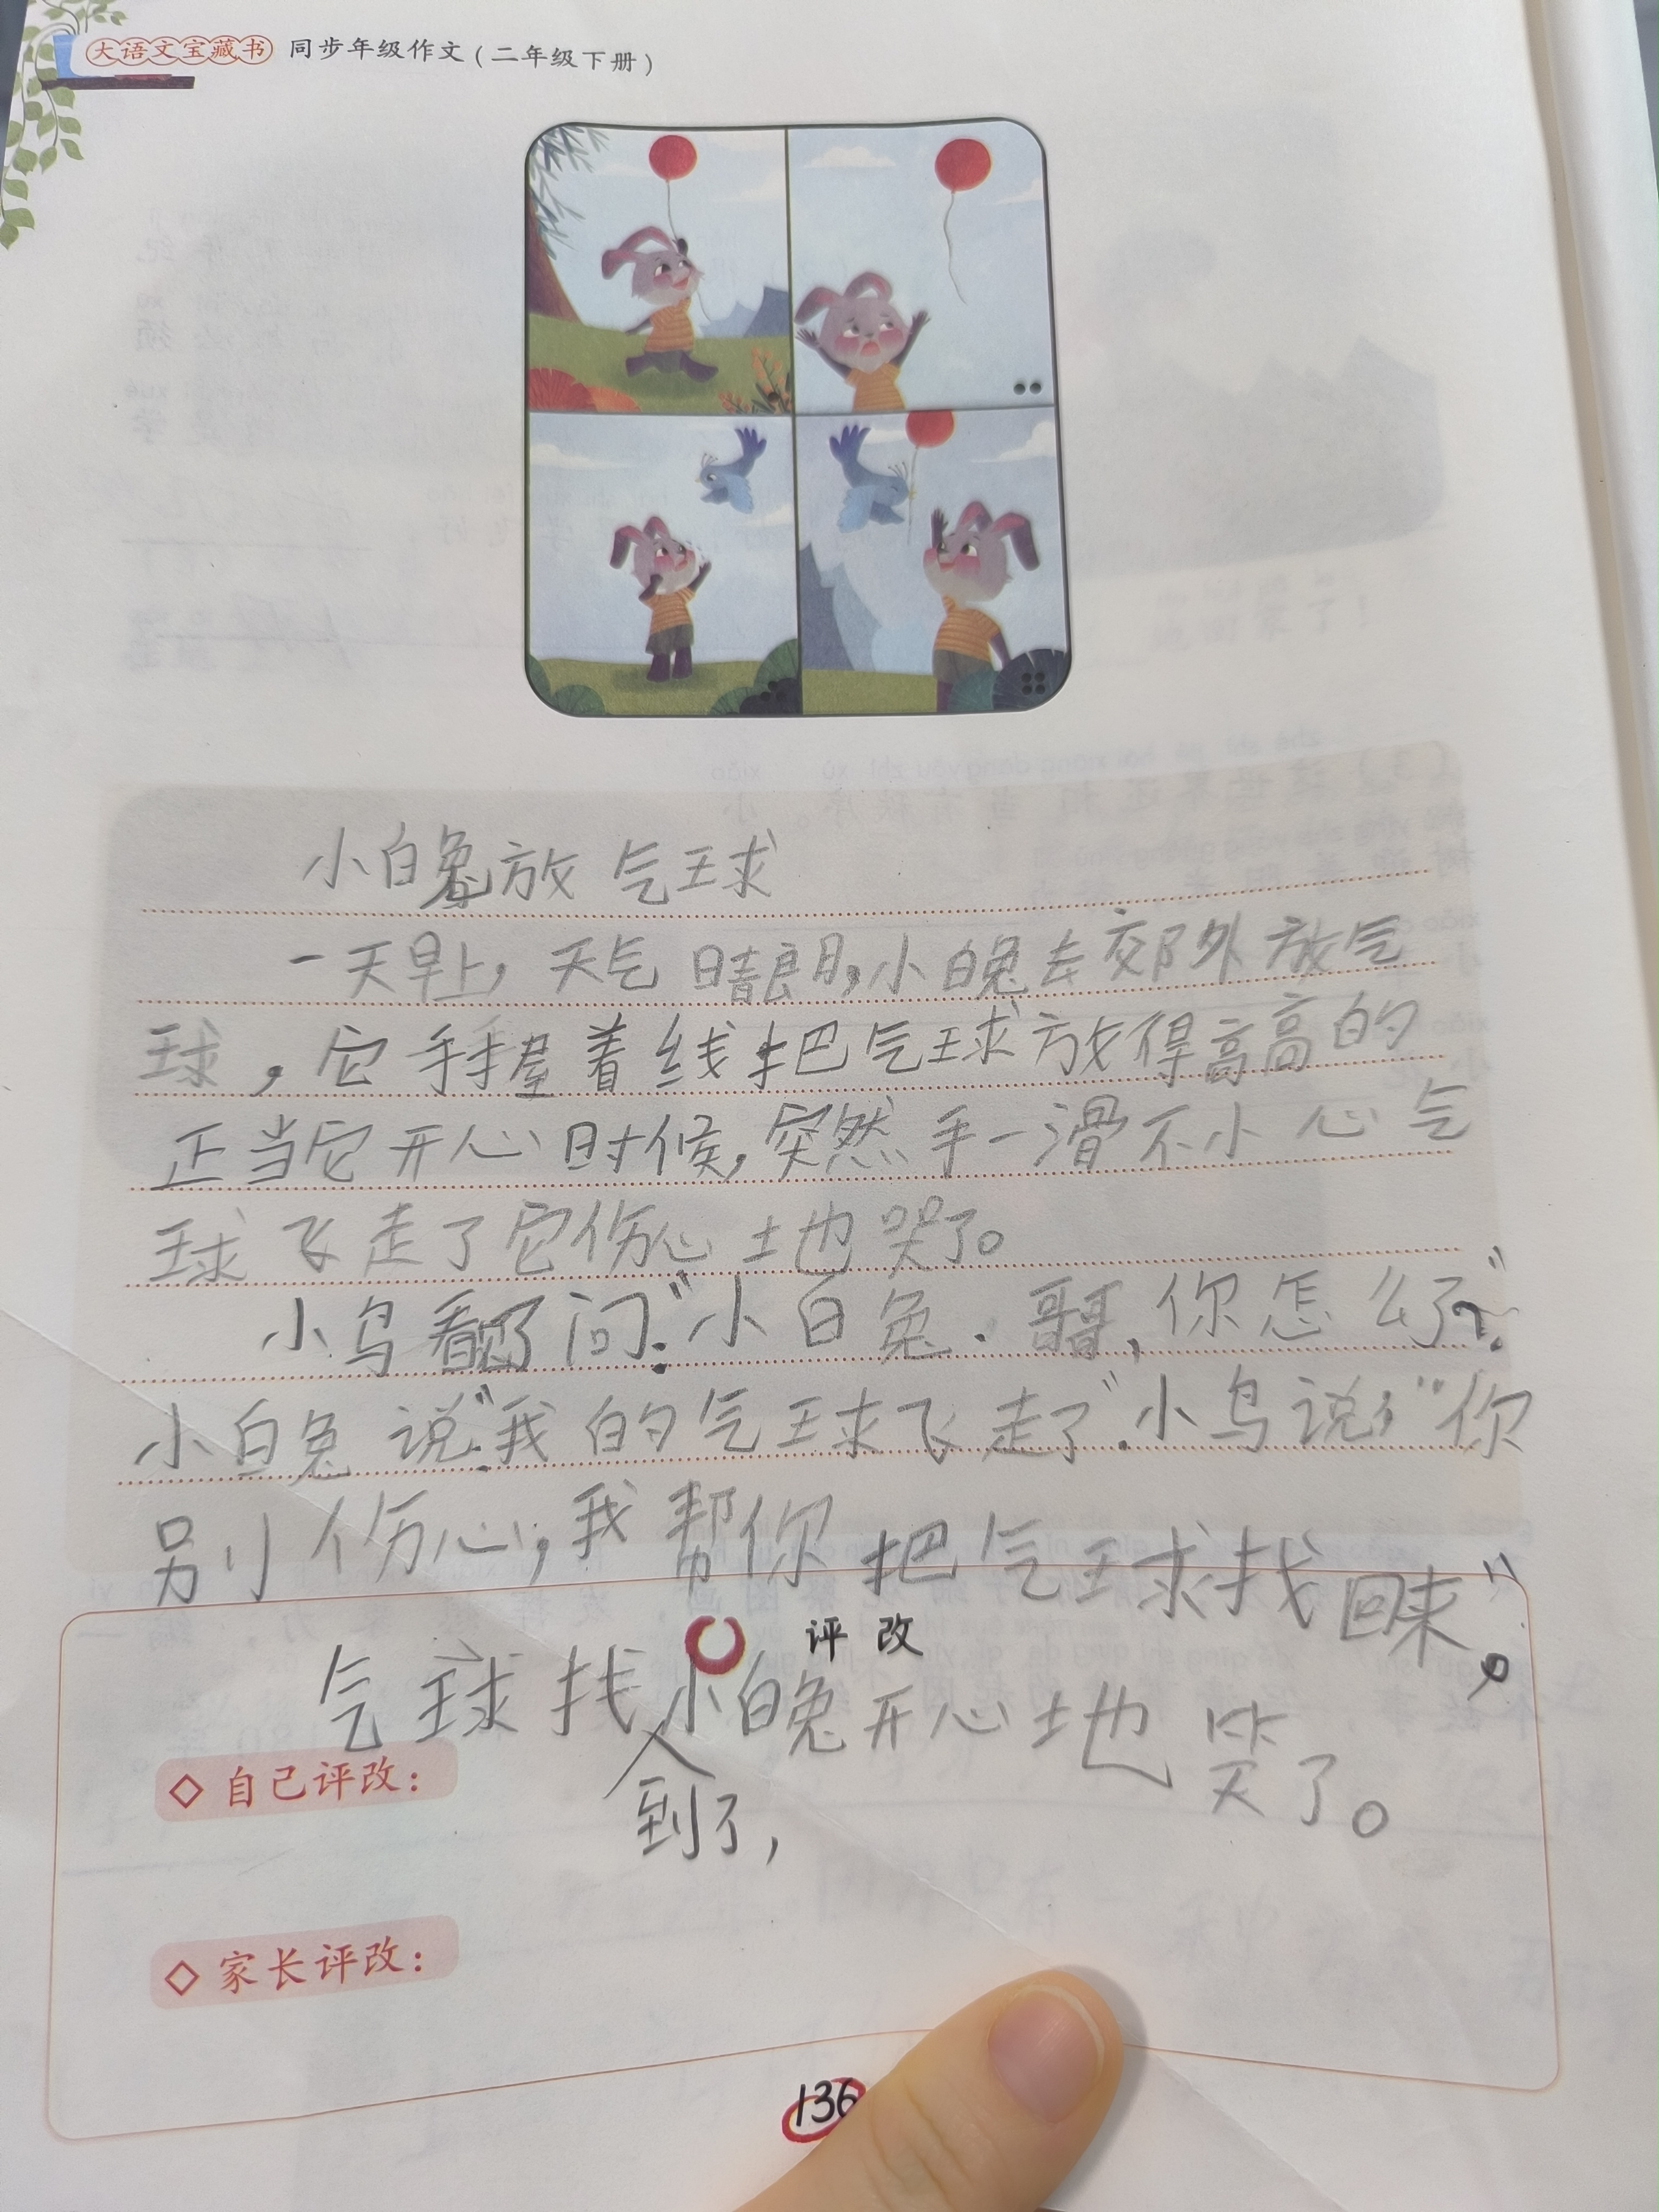 大语文宝藏书 同步年级作文(二年级下册)
小白兔放气球
一天早上,天气晴朗,小白兔去郊外放气
球,它手握着线把气球放得高高的
正当它开心时候,突然手一滑不小心气
球飞走了它伤心地哭了。
小鸟看了问:“小白兔.哥哥,你怎么了”?
小白兔说:“我的气球飞走了”.小鸟说:“你
别伤心,我帮你把气球找回来”。
评改
气球找小白兔开心地笑了。
到了,
◇自己评改:
◇家长评改:
136